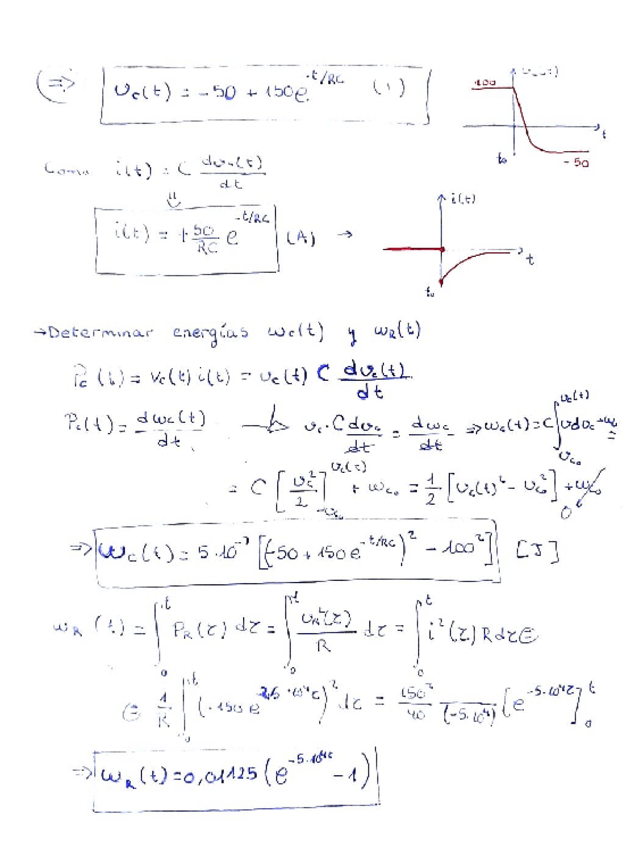 (⇒) υc(t) = -50 + 150e^{-t/RC} (1)
100 t
t₀ -50
Como i(t) = C dυc(t)/dt
⇓ i(t)
i(t) = +50/RC e^{-t/RC} (A) → t
t₀
→Determinar energías wc(t) y wR(t)
Pc(t) = vc(t) i(t) = υc(t) C dυc(t)/dt
Pc(t) = dwc(t)/dt → υc · C dυc/dt = dwc/dt ⇒ wc(t) = C ∫_{υc₀}^{υc(t)} υdυc + w₀ =
= C [υc²/2]_{υc₀}^{υc(t)} + wc₀ = 1/2 [υc(t)² - υc₀²] + wc₀ 0
⇒ wc(t) = 5·10⁻⁷ [(-50 + 150e^{-t/RC})² - 100²] [J]
wR(t) = ∫₀ᵗ PR(τ) dτ = ∫₀ᵗ υR²(τ)/R dτ = ∫₀ᵗ i²(τ) R dτ ⊜
⊜ 1/R ∫₀ᵗ (-150 e^{-2,5·10⁴τ})² dτ = 150²/40 1/(-5·10⁴) [e^{-5·10⁴τ}]₀ᵗ
⇒ wR(t) = 0,01125 (e^{-5·10⁴t} - 1)